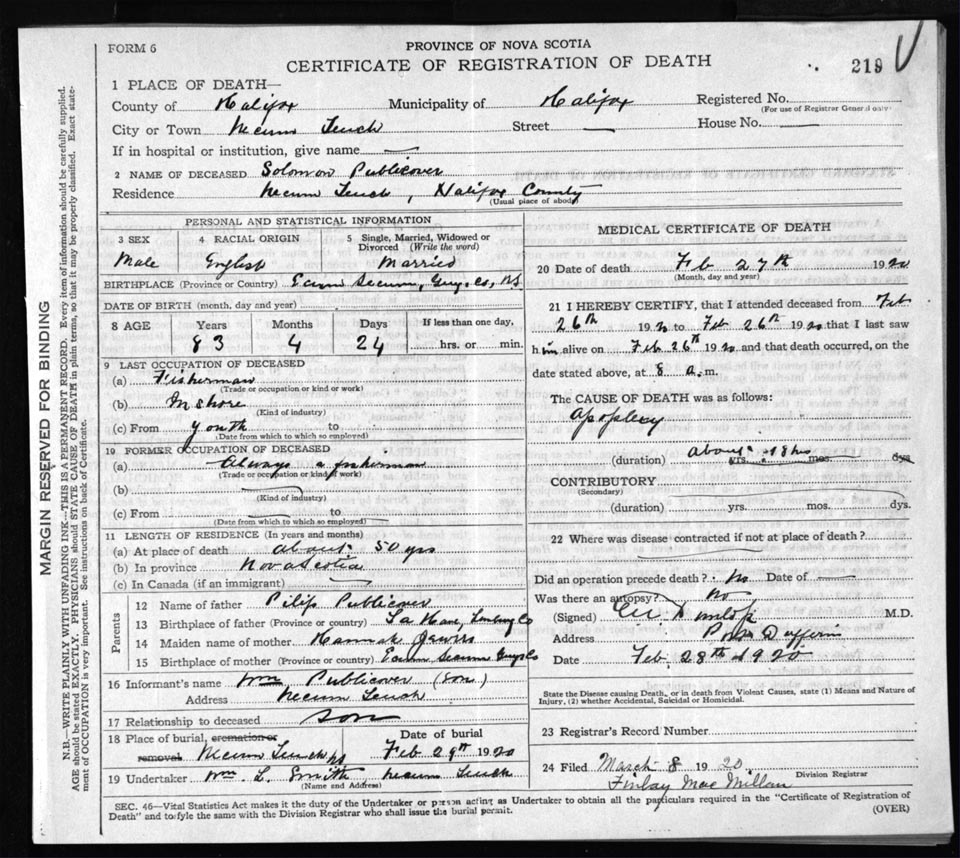 FORM 6
PROVINCE OF NOVA SCOTIA
CERTIFICATE OF REGISTRATION OF DEATH
219
1 PLACE OF DEATH—
County of Halifax Municipality of Halifax Registered No.
(For use of Registrar General only)
City or Town Necum Teuch Street — House No. —
If in hospital or institution, give name —
2 NAME OF DECEASED Solomon Publicover
Residence Necum Teuch, Halifax County
(Usual place of abode)
PERSONAL AND STATISTICAL INFORMATION
3 SEX 4 RACIAL ORIGIN 5 Single, Married, Widowed or Divorced (Write the word)
Male English Married
BIRTHPLACE (Province or Country) Ecum Secum, Guys. Co, N.S
DATE OF BIRTH (month, day and year)
8 AGE Years Months Days If less than one day,
83 4 24 hrs. or min.
9 LAST OCCUPATION OF DECEASED
(a) Fisherman
(Trade or occupation or kind or work)
(b) Inshore
(Kind of industry)
(c) From youth to
(Date from which to which so employed)
10 FORMER OCCUPATION OF DECEASED
(a) Always a fisherman
(Trade or occupation or kind of work)
(b)
(Kind of industry)
(c) From — to
(Date from which to which so employed)
11 LENGTH OF RESIDENCE (In years and months)
(a) At place of death about 50 yrs
(b) In province Nova Scotia
(c) In Canada (if an immigrant) —
Parents
12 Name of father Pilip Publicover
13 Birthplace of father (Province or country) La Have, Lunburg Co
14 Maiden name of mother Hannah Jewers
15 Birthplace of mother (Province or country) Ecum Secum Guys Co
16 Informant's name Wm Publicover (Son)
Address Necum Teuch
17 Relationship to deceased son
18 Place of burial, cremation or removal Necum Teuch NS
Date of burial
Feb 29th 1920
19 Undertaker Wm. L. Smith, Necum Teuch
(Name and Address)
MEDICAL CERTIFICATE OF DEATH
20 Date of death Feb 27th 1920
(Month, day and year)
21 I HEREBY CERTIFY, that I attended deceased from Feb
26th 1920 to Feb 26th 1920 that I last saw
him alive on Feb 26th 1920 and that death occurred, on the
date stated above, at 8 a.m.
The CAUSE OF DEATH was as follows:
Apoplexy
(duration) about 18 hrs yrs. mos. dys.
CONTRIBUTORY
(Secondary)
(duration) yrs. mos. dys.
22 Where was disease contracted if not at place of death?
Did an operation precede death? No Date of —
Was there an autopsy? No
(Signed) Dunlop M.D.
Address Port Dufferin
Date Feb 28th 1920
State the Disease causing Death, or in death from Violent Causes, state (1) Means and Nature of
Injury, (2) whether Accidental, Suicidal or Homicidal.
23 Registrar's Record Number
24 Filed March 8 1920.
Finlay MacMillan
Division Registrar
SEC. 46—Vital Statistics Act makes it the duty of the Undertaker or person acting as Undertaker to obtain all the particulars required in the "Certificate of Registration of
Death" and to fyle the same with the Division Registrar who shall issue the burial permit.
(OVER)
MARGIN RESERVED FOR BINDING
N.B.—WRITE PLAINLY WITH UNFADING INK—THIS IS A PERMANENT RECORD. Every item of information should be carefully supplied.
AGE should be stated EXACTLY. PHYSICIANS should STATE CAUSE OF DEATH in plain terms, so that it may be properly classified. Exact state-
ment of OCCUPATION is very important. See instructions on back of Certificate.